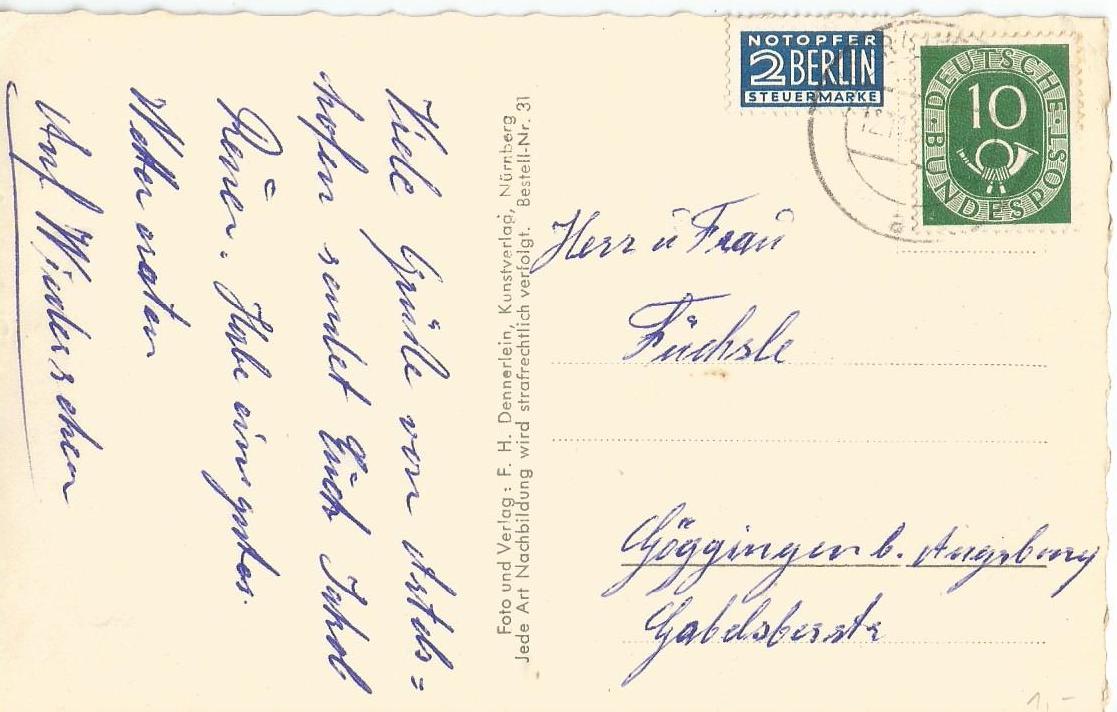 Viele Grüße von Artels=
hofen sendet Euch Jakob
Rainer. Habe ein gutes
Wetter
Auf Wiedersehen
Foto und Verlag: F. H. Dennerlein, Kunstverlag, Nürnberg
Jede Art Nachbildung wird strafrechtlich verfolgt. Bestell-Nr. 31
NOTOPFER
2 BERLIN
STEUERMARKE
DEUTSCHE BUNDESPOST
10
Herr u Frau
Füchsle
Göggingen b. Augsburg
Gabelsberstr
1,-